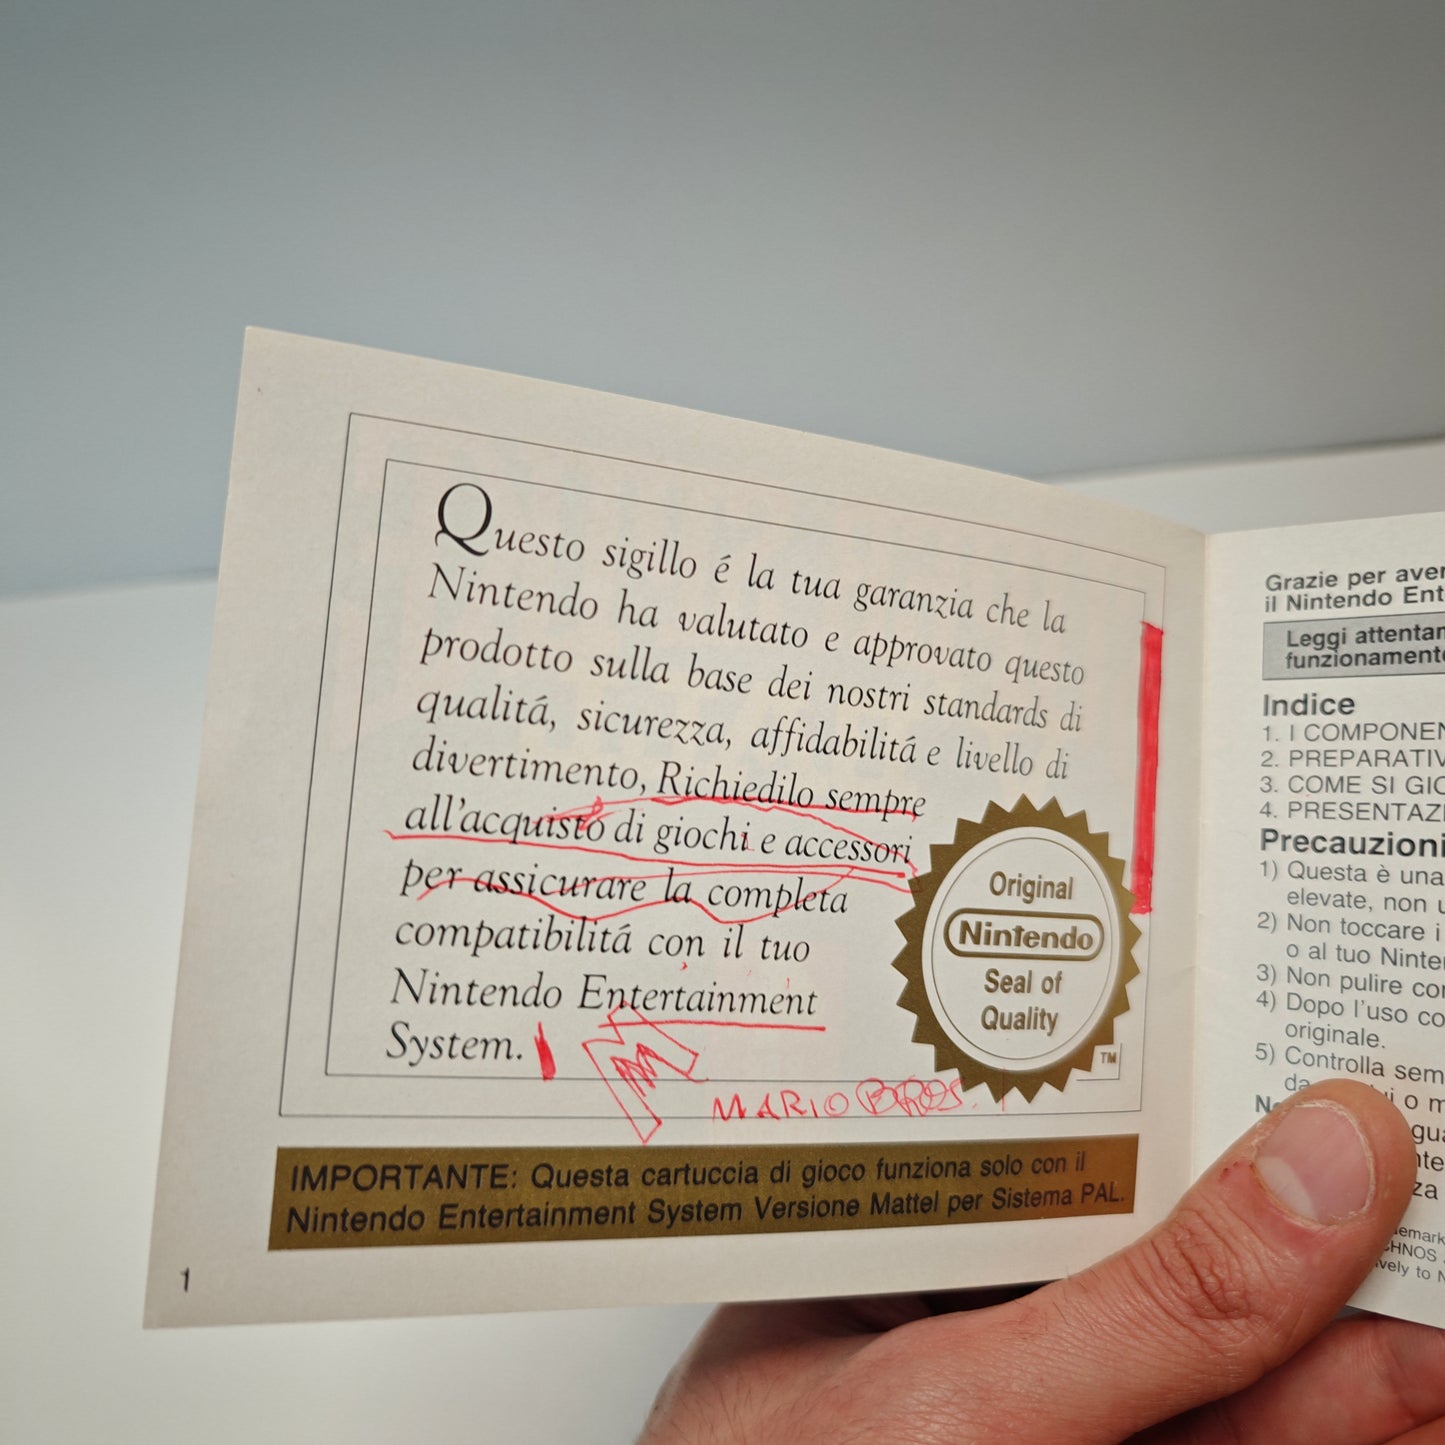 Questo sigillo é la tua garanzia che la
Nintendo ha valutato e approvato questo
prodotto sulla base dei nostri standards di
qualitá, sicurezza, affidabilitá e livello di
divertimento, Richiedilo sempre
all'acquisto di giochi e accessori
per assicurare la completa
compatibilitá con il tuo
Nintendo Entertainment
System.
Original
Nintendo
Seal of
Quality
TM
M
MARIO BROS.
IMPORTANTE: Questa cartuccia di gioco funziona solo con il
Nintendo Entertainment System Versione Mattel per Sistema PAL.
1
Grazie per aver
il Nintendo Ent
Leggi attentam
funzionamento
Indice
1. I COMPONEN
2. PREPARATIV
3. COME SI GIO
4. PRESENTAZI
Precauzioni
1) Questa è una
elevate, non u
2) Non toccare i
o al tuo Ninte
3) Non pulire co
4) Dopo l'uso co
originale.
5) Controlla sem
da o m